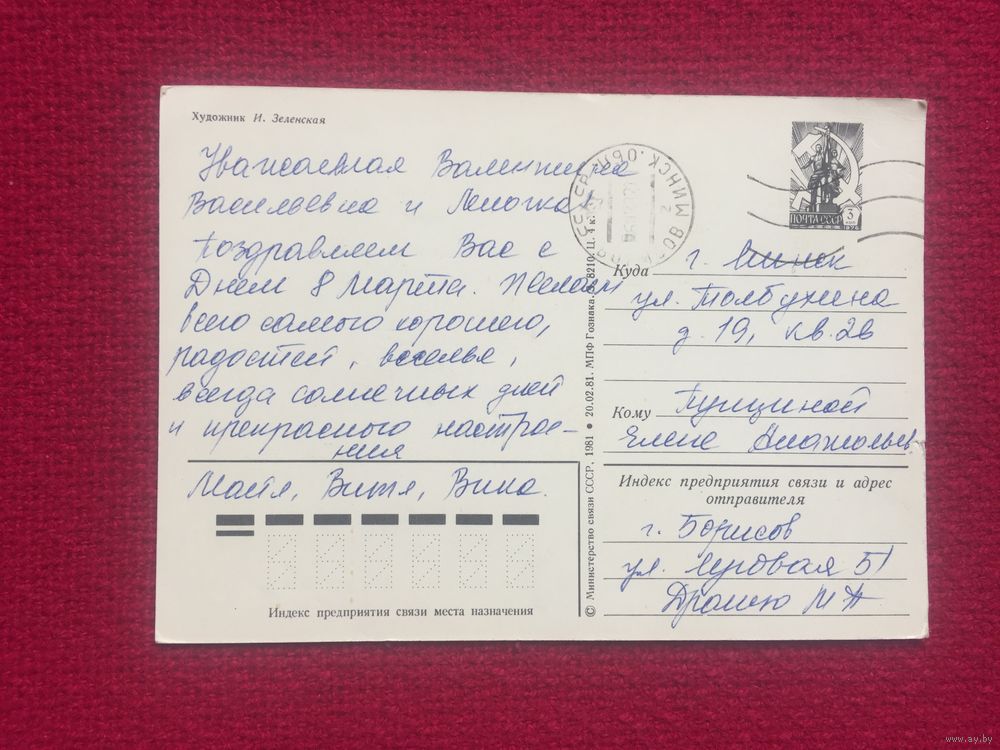 Художник И. Зеленская
Уважаемая Валентина
Васильевна и Леночка
Поздравляем Вас с
Днем 8 Марта. Желаем
всего самого хорошего,
радостей, веселья,
всегда солнечных дней
и прекрасного настрое-
ния
Витя, Вика.
Индекс предприятия связи места назначения
© Министерство связи СССР, 1981 ● 20.02.81. МПФ Гознака. 8210. Ц. 4 к.
МИНСК
ПОЧТА СССР
3
1976
Куда г. Минск
ул. Толбухина
д. 19, кв. 26
Кому Пущиной
Елене
Индекс предприятия связи и адрес
отправителя
г. Борисов
ул. Луговая 51
www.ay.by